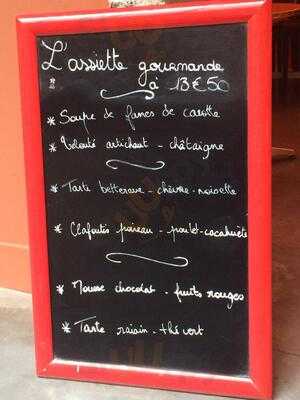 L'assiette gourmande
à 13€50
* Soupe de fanes de carotte
* Velouté artichaut - châtaigne
* Tarte betterave - chèvre - noisette
* Clafoutis poireau - poulet - cacahuète
* Mousse chocolat - fruits rouges
* Tarte raisin - thé vert